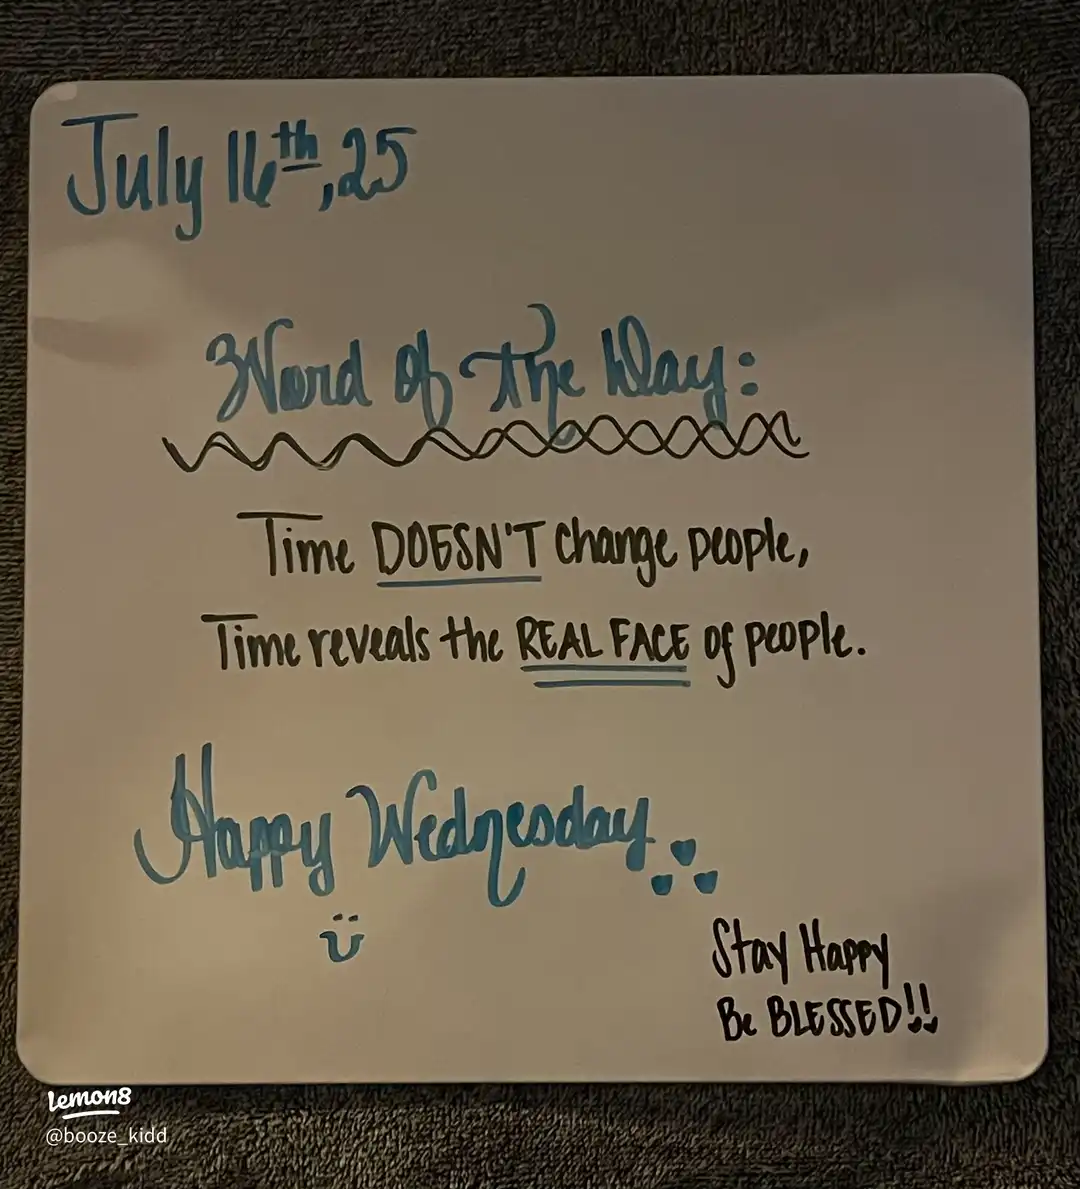 July 16th, 25
Word of The Day:
Time DOESN'T change people,
Time reveals the REAL FACE of people.
Happy Wednesday
Stay Happy
Be BLESSED!!
lemon8
@booze_kidd